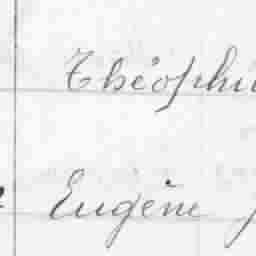 Théophi
Eugène